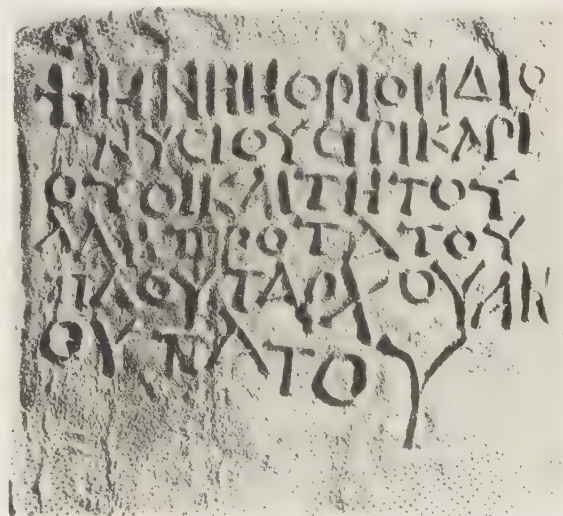 + ΜΝΗΜΟΡΙΟΝΔΙΟ
ΝΥCΙΟΥCΠΙΚΑΡΙ
ΟΥΟΙΚΑΙΤΗΤΟΥ
ΛΑΜΠΡΟΤΑΤΟΥ
ΠΛΟΥΤΑΡΧΟΥΑΝ
ΘΥΠΑΤΟΥ